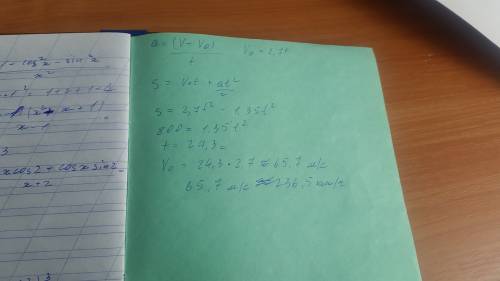 a = (V - V₀) / t
V₀ = 2,7t
S = V₀t + at² / 2
S = 2,7t² - 1,35t²
800 = 1,35t²
t = 24,3
V₀ = 24,3 · 2.7 ≈ 65.7 м/с
65,7 м/с ≈ 236,5 км/ч
x²
x - 1
3
x cos2 + cosx sin2
x + 2